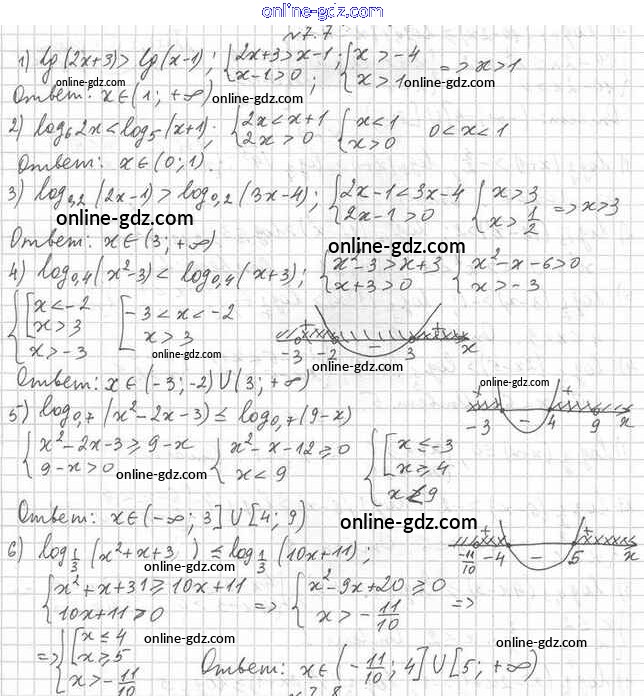 online-gdz.com
№7.7
1) lg(2x+3)>lg(x-1); {2x+3>x-1; x-1>0; {x>-4 x>1 => x>1
online-gdz.com online-gdz.com
Ответ: x∈(1; +∞) online-gdz.com
2) log₆2x<log₅(x+1); {2x<x+1 2x>0 {x<1 x>0 0<x<1
Ответ: x∈(0;1). online-gdz.com
3) log₀,₂(2x-1)>log₀,₂(3x-4); {2x-1<3x-4 2x-1>0 {x>3 x>1/2 => x>3
online-gdz.com
Ответ: x∈(3; +∞) online-gdz.com
4) log₀,₄(x²-3)<log₀,₄(x+3); {x²-3>x+3 x+3>0 {x²-x-6>0 x>-3
online-gdz.com
{[x<-2 x>3 x>-3 [-3<x<-2 x>3 + - + -3 -2 3 x
online-gdz.com online-gdz.com
Ответ: x∈(-3;-2)∪(3;+∞)
online-gdz.com
5) log₀,₇(x²-2x-3)≤log₀,₇(9-x) + - + -3 4 9 x
{x²-2x-3≥9-x 9-x>0 {x²-x-12≥0 x<9 {[x≤-3 x≥4 x<9
online-gdz.com online-gdz.com
Ответ: x∈(-∞; 3]∪[4; 9) online-gdz.com
6) log₁/₃(x²+x+3 )≤log₁/₃(10x+11); + - + -11/10 -4 5 x
{x²+x+31≥10x+11 10x+11>0 => {x²-9x+20≥0 x>-11/10 =>
online-gdz.com
=> {[x≤4 x≥5 x>-11/10 online-gdz.com online-gdz.com
Ответ: x∈(-11/10; 4]∪[5; +∞)
online-gdz.com
№7.8